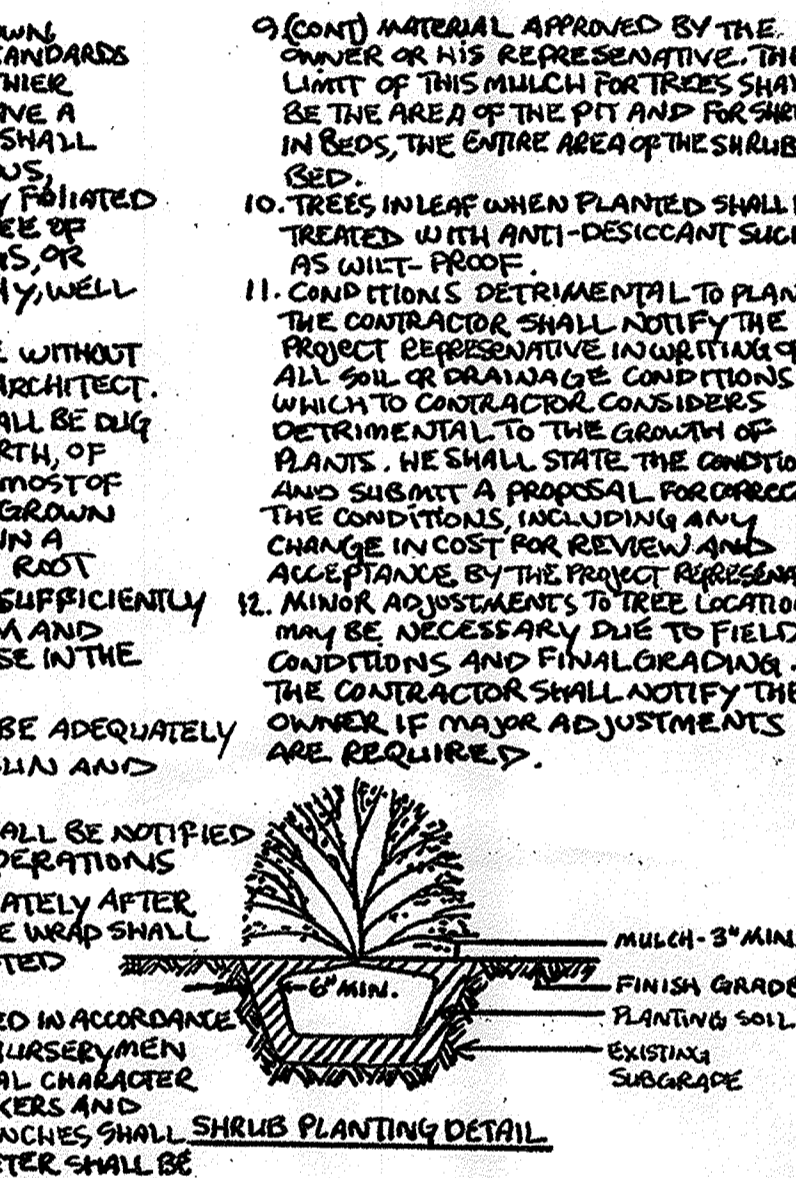 OWN
TANDARDS
THIER
AVE A
SHALL
US,
Y FOLIATED
EE OF
GS, OR
HY, WELL
E WITHOUT
ARCHITECT.
ALL BE DUG
RTH, OF
MOST OF
GROWN
IN A
ROOT
SUFFICIENTLY
M AND
SE IN THE
BE ADEQUATELY
UN AND
ALL BE NOTIFIED
PERATIONS
ATELY AFTER
E WRAP SHALL
TED
ED IN ACCORDANCE
NURSERYMEN
AL CHARACTER
KERS AND
NCHES SHALL
ETER SHALL BE
9.(CONT) MATERIAL APPROVED BY THE
OWNER OR HIS REPRESENATIVE. THE
LIMIT OF THIS MULCH FOR TREES SHAL
BE THE AREA OF THE PIT AND FOR SHRU
IN BEDS, THE ENTIRE AREA OF THE SHRUB
BED.
10. TREES IN LEAF WHEN PLANTED SHALL
TREATED WITH ANTI-DESICCANT SUCH
AS WILT-PROOF.
11. CONDITIONS DETRIMENTAL TO PLAN
THE CONTRACTOR SHALL NOTIFY THE
PROJECT REPRESENATIVE IN WRITING OF
ALL SOIL OR DRAINAGE CONDITIONS
WHICH TO CONTRACTOR CONSIDERS
DETRIMENTAL TO THE GROWTH OF
PLANTS. HE SHALL STATE THE CONDITIO
AND SUBMIT A PROPOSAL FOR CORREC
THE CONDITIONS, INCLUDING ANY
CHANGE IN COST FOR REVIEW AND
ACCEPTANCE BY THE PROJECT REPRESENA
12. MINOR ADJUSTMENTS TO TREE LOCATIO
MAY BE NECESSARY DUE TO FIELD
CONDITIONS AND FINAL GRADING.
THE CONTRACTOR SHALL NOTIFY THE
OWNER IF MAJOR ADJUSTMENTS
ARE REQUIRED.
MULCH-3" MIN.
6" MIN.
FINISH GRADE
PLANTING SOIL
EXISTING
SUBGRADE
SHRUB PLANTING DETAIL